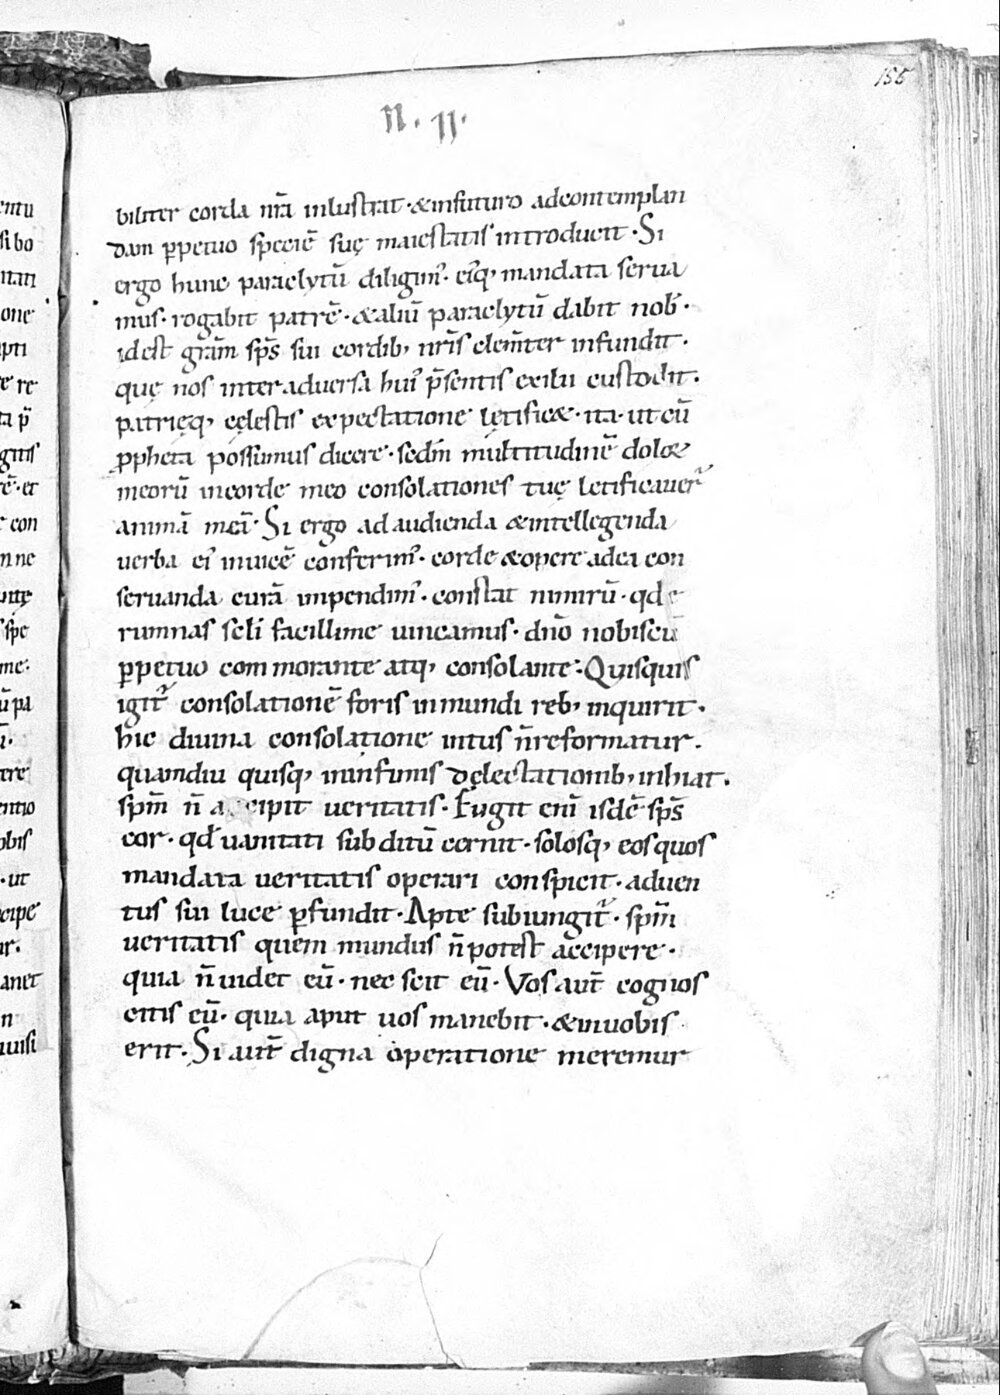 155
II. II.
biliter corda nr̄a inlustrat · & infuturo adcontemplan
dam ꝑpetuo speciē suę maiestatis introducit · Si
ergo hunc paraclytū diligimꝰ · eiꝰq; mandata serua
mus · rogabit patrē · & aliū paraclytū dabit nob̄ ·
idest grām sp̄s sui cordib; nr̄is clem̄ter infundit ·
quę nos inter aduersa huiꝰ p̄sentis exilii custodit ·
patrięq; cęlestis expectatione lętific& · ita · ut cū
ꝓpheta possimus dicere · sedm̄ multitudinē dolor
meorū incorde meo consolationes tuę letificauer̄
animā meā · Si ergo ad audienda & intellegenda
uerba eiꝰ inuicē conferimꝰ · corde & opere adea con
seruanda curā impendimꝰ · constat nimirū · qd
rumnas scl̄i facillime uincamus · dn̄o nobiscū
ꝑpetuo commorante atq; consolante · Quisquis
igit᷑ consolationē foris inmundi reb; inquirit ·
hic diuina consolatione intus n̄ reformatur ·
quamdiu quisq; ininfimis dęlectationib; inhiat ·
spm̄ n̄ accipit ueritatis · Fugit enī isdē sp̄s
cor · qd uanitati subditū cernit · solosq; eos quos
mandata ueritatis operari conspicit · aduen
tus sui luce ꝑfundit · Apte subiungit᷑ · spm̄
ueritatis quem mundus n̄ potest accipere ·
quia n̄ uidet eū · nec scit eū · Vos aut̄ cognos
citis eū · quia aput uos manebit · & inuobis
erit · Si aut̄ digna operatione meremur